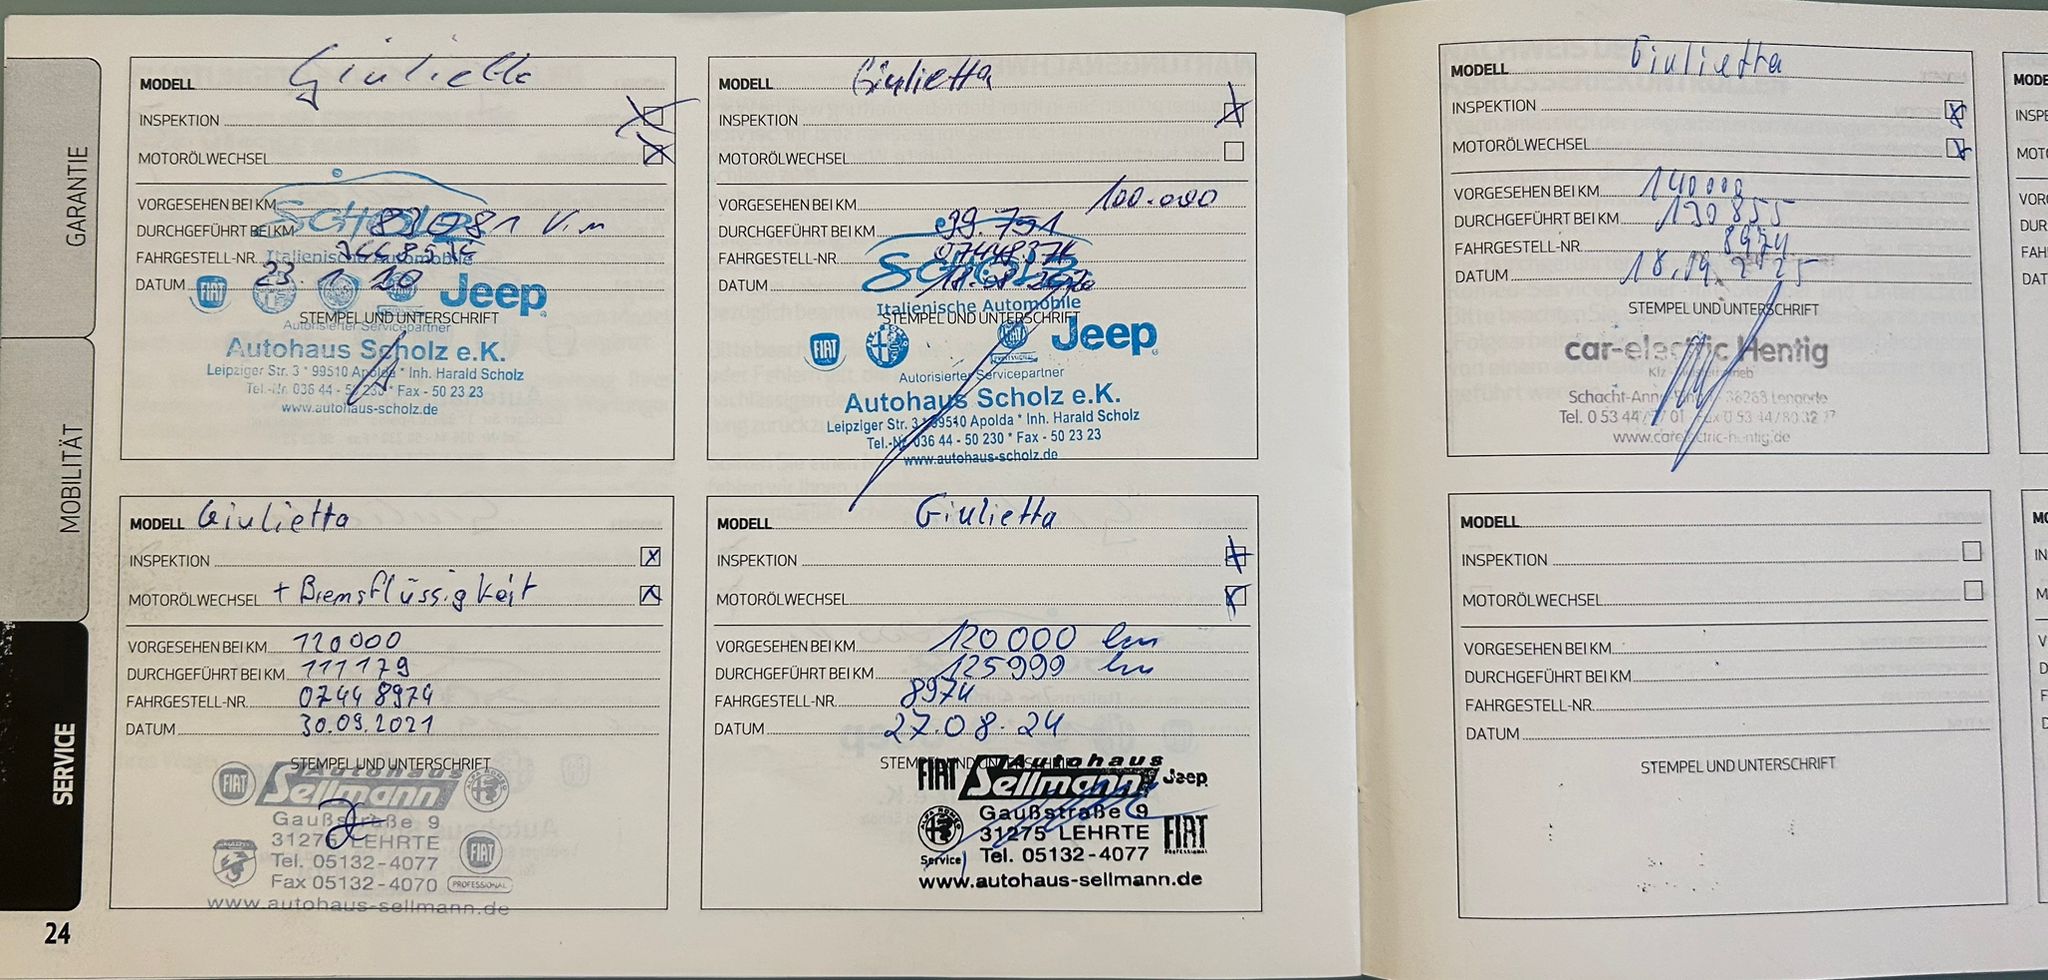 GARANTIE
MOBILITÄT
SERVICE
24
MODELL Giulietta
INSPEKTION
MOTORÖLWECHSEL
VORGESEHEN BEI KM
DURCHGEFÜHRT BEI KM
FAHRGESTELL-NR.
DATUM 23. 1. 20
Scholz
Italienische Automobile
FIAT Jeep
STEMPEL UND UNTERSCHRIFT
Autorisierter Servicepartner
Autohaus Scholz e.K.
Leipziger Str. 3 * 99510 Apolda * Inh. Harald Scholz
Tel.-Nr. 036 44 - 50 230 * Fax - 50 23 23
www.autohaus-scholz.de
MODELL Giulietta
INSPEKTION
MOTORÖLWECHSEL
VORGESEHEN BEI KM 100.000
DURCHGEFÜHRT BEI KM 99.751
FAHRGESTELL-NR.
DATUM
Scholz
Italienische Automobile
STEMPEL UND UNTERSCHRIFT
FIAT Jeep
Autorisierter Servicepartner
Autohaus Scholz e.K.
Leipziger Str. 3 * 99510 Apolda * Inh. Harald Scholz
Tel.-Nr. 036 44 - 50 230 * Fax - 50 23 23
www.autohaus-scholz.de
MODELL Giulietta
INSPEKTION
MOTORÖLWECHSEL + Bremsflüssigkeit
VORGESEHEN BEI KM 120000
DURCHGEFÜHRT BEI KM 111179
FAHRGESTELL-NR. 07448974
DATUM 30.09.2021
STEMPEL UND UNTERSCHRIFT
FIAT Autohaus Sellmann
Gaußstraße 9
31275 LEHRTE
Tel. 05132-4077
Fax 05132-4070
FIAT PROFESSIONAL
www.autohaus-sellmann.de
MODELL Giulietta
INSPEKTION
MOTORÖLWECHSEL
VORGESEHEN BEI KM 120000 km
DURCHGEFÜHRT BEI KM 125999 km
FAHRGESTELL-NR. 8974
DATUM 27.08.24
STEMPEL UND UNTERSCHRIFT
FIAT Autohaus Sellmann Jeep
Gaußstraße 9
31275 LEHRTE
Service Tel. 05132-4077
FIAT PROFESSIONAL
www.autohaus-sellmann.de
MODELL Giulietta
INSPEKTION
MOTORÖLWECHSEL
VORGESEHEN BEI KM 140000
DURCHGEFÜHRT BEI KM 130855
FAHRGESTELL-NR. 8974
DATUM
STEMPEL UND UNTERSCHRIFT
car-electric Hentig
38268 Lengede
Tel. 0 53 44
MODELL
INSPEKTION
MOTORÖLWECHSEL
VORGESEHEN BEI KM
DURCHGEFÜHRT BEI KM
FAHRGESTELL-NR.
DATUM
STEMPEL UND UNTERSCHRIFT